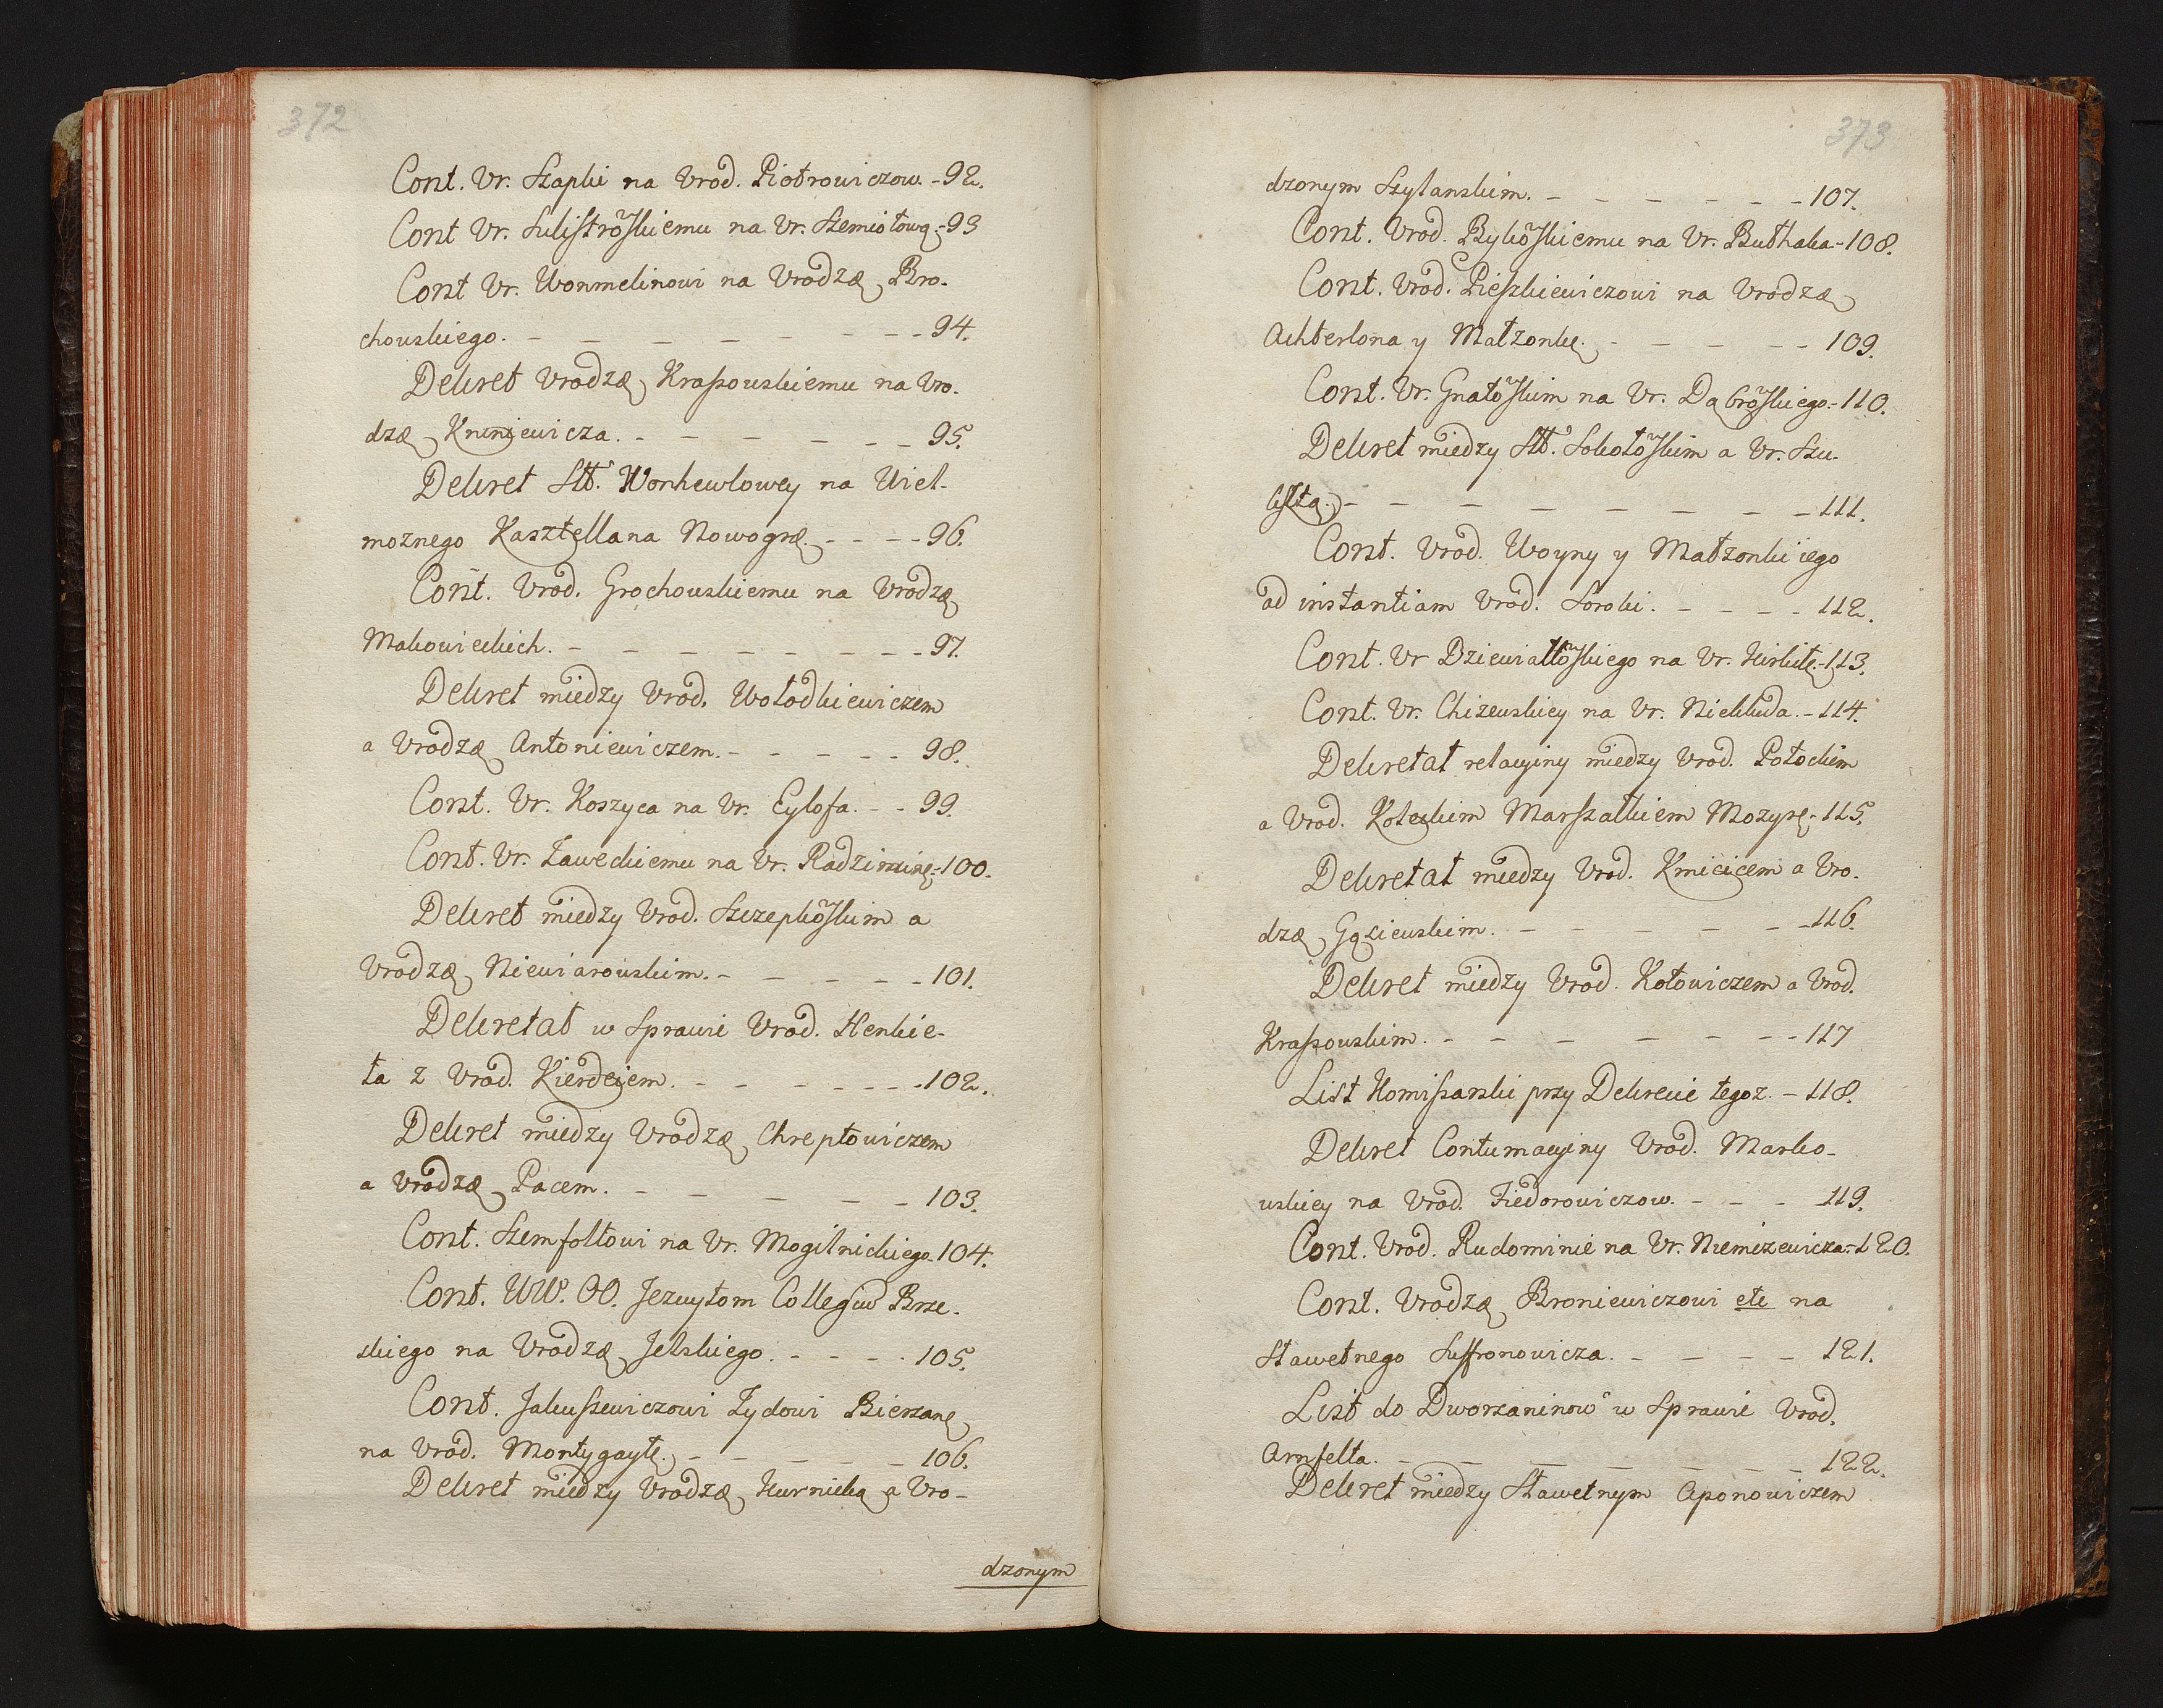 372
Cont. Vr. Szapki na Vrod. Piotrowiczow. - 92.
Cont Vr. Sulistrõskiemu na Vr. Szemiotową. - 93
Cont Vr. Wonmelinowi na Vrodzą Bro-
chowskiego. - - - - - - - - 94.
Dekret Vrodzę Kraszowskiemu na Vro-
dzę Kniniewicza. - - - - - - - 95.
Dekret Stt. Wonhewlowey na Wiel-
możnego Kasztellana Nowogrę. - - - - 96.
Cont. Vrod. Grochowskiemu na Vrodzę
Makowieckich. - - - - - - - - 97.
Dekret między Vrod. Wołodkiewiczem
a Vrodzę Antoniewiczem. - - - - - 98.
Cont. Vr. Koszyca na Vr. Eylofa. - - 99.
Cont. Vr. Zaweckiemu na Vr. Radziminę. - 100.
Dekret między Vrod. Szczepkõskim a
Vrodzę Niewiarowskim. - - - - - 101.
Dekretat w Sprawie Vrod. Henkie-
ta z Vrod. Kierdeiem. - - - - - - - 102.
Dekret między Vrodzę Chreptowiczem
a Vrodzę Pacem. - - - - - - 103.
Cont. Szemfoltowi na Vr. Mogilnickiego. 104.
Cont. WW. OO. Jezuytom Collegiũ Brze-
skiego na Vrodzę Jelskiego. - - - - 105.
Cont. Jakuszewiczowi Zydowi Bierzanę
na Vrod. Montygaytę. - - - - - 106.
Dekret między Vrodzę Kurnicką a Vro-
dzonym
373
dzonym Szylanskim. - - - - - - - 107.
Cont. Vrod. Bykõskiemu na Vr. Buthaka - 108.
Cont. Vrod. Pieszkiewiczowi na Vrodzę
Achterlona y Małzonkę. - - - - - 109.
Cont. Vr. Gnatõskim na Vr. Dąbrõskiego. - 110.
Dekret między Stt. Sokołõskim a Vr. Szu-
- - - - - - - - 111.
Cont. Vrod. Woyny y Małzonki iego
ad instantiam Vrod. Soroki. - - - - 112.
Cont. Vr Dziewiałtõskiego na Vr. - 113.
Cont. Vr. Chizewskiey na Vr. - 114.
Dekretat relacyiny między Vrod. Potockim
a Vrod. Marszałkiem Mozyrę. - 115.
Dekretat między Vrod. Kmicicem a Vro-
dzę Gąsiewskim. - - - - - - 116.
Dekret między Vrod. Kotowiczem a Vrod.
Kraszowskim. - - - - - - - 117
List Komiszarski przy Dekrecie tegoz. - 118.
Dekret Contumacyiny Vrod. Marko-
wskiey na Vrod. Fiedorowiczow. - - - 119.
Cont. Vrod. Rudominie na Vr. Niemczewicza. - 120.
Cont. Vrodzę Broniewiczowi etc na
Sławetnego Suffronowicza. - - - - 121.
List do Dworzaninow w Sprawie Vrod.
Amfelta. - - - - - - - 122.
Dekret między Sławetnym Aponowiczem